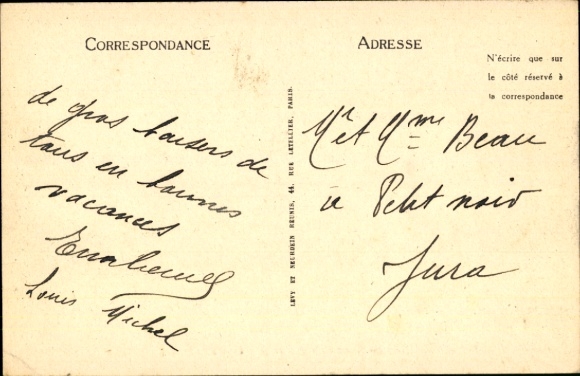 CORRESPONDANCE
de gros baisers de
tous en bonnes
vacances
Louis Michel
LEVY ET NEURDEIN REUNIS, 44, RUE LETELLIER, PARIS.
ADRESSE
N'écrire que sur
le côté réservé à
la correspondance
Mr et Mme Beau
Petit noir
Jura